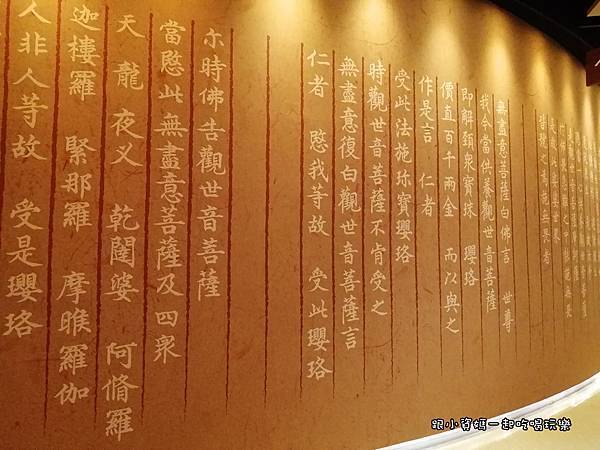 皆號之為施無畏者
無盡意菩薩白佛言 世尊
我今當供養觀世音菩薩
即解頸眾寶珠 瓔珞
價直百千兩金 而以與之
作是言 仁者
受此法施珎寶瓔珞
時觀世音菩薩不肯受之
無盡意復白觀世音菩薩言
仁者 愍我等故 受此瓔珞
尒時佛告觀世音菩薩
當愍此無盡意菩薩及四眾
天 龍 夜叉 乾闥婆 阿脩羅
迦樓羅 緊那羅 摩睺羅伽
人非人等故 受是瓔珞
跟小資媽一起吃喝玩樂